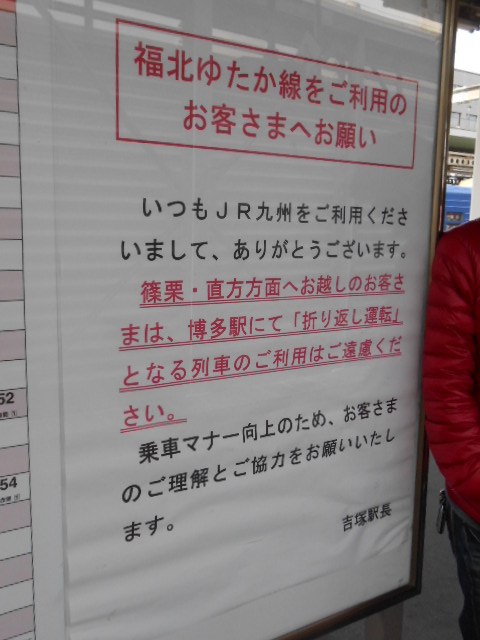 福北ゆたか線をご利用の
お客さまへお願い
いつもJR九州をご利用くださ
いまして、ありがとうございます。
篠栗・直方方面へお越しのお客さ
まは、博多駅にて「折り返し運転」
となる列車のご利用はご遠慮くだ
さい。
乗車マナー向上のため、お客さま
のご理解とご協力をお願いいたし
ます。
吉塚駅長
52
54